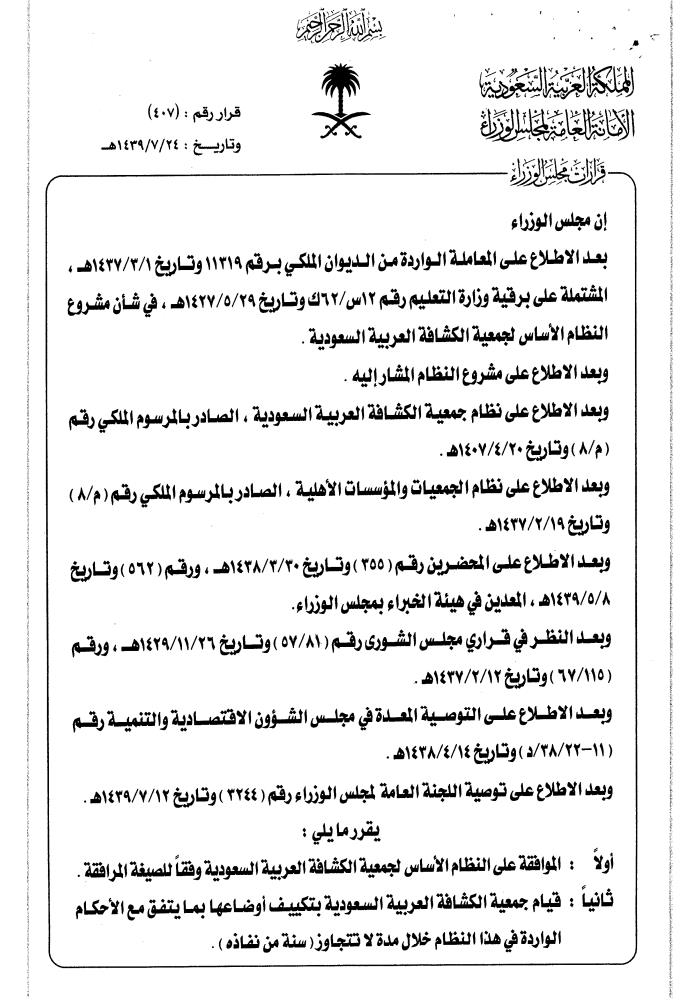 بسم الله الرحمن الرحيم
المملكة العربية السعودية
الأمانة العامة لمجلس الوزراء
قرار رقم : (٤٠٧)
وتاريخ : ١٤٣٩/٧/٢٤هـ
قرارات مجلس الوزراء
إن مجلس الوزراء
بعد الاطلاع على المعاملة الواردة من الديوان الملكي برقم ١١٣١٩ وتاريخ ١٤٣٧/٣/١هـ ،
المشتملة على برقية وزارة التعليم رقم ١٢س/٦٢ك وتاريخ ١٤٢٧/٥/٢٩هـ ، في شأن مشروع
النظام الأساس لجمعية الكشافة العربية السعودية .
وبعد الاطلاع على مشروع النظام المشار إليه .
وبعد الاطلاع على نظام جمعية الكشافة العربية السعودية ، الصادر بالمرسوم الملكي رقم
(م/٨) وتاريخ ١٤٠٧/٤/٢٠هـ .
وبعد الاطلاع على نظام الجمعيات والمؤسسات الأهلية ، الصادر بالمرسوم الملكي رقم (م/٨)
وتاريخ ١٤٣٧/٢/١٩هـ .
وبعد الاطلاع على المحضرين رقم (٣٥٥) وتاريخ ١٤٣٨/٣/٣٠هـ ، ورقم (٥٦٢) وتاريخ
١٤٣٩/٥/٨هـ ، المعدين في هيئة الخبراء بمجلس الوزراء.
وبعد النظر في قراري مجلس الشورى رقم (٥٧/٨١) وتاريخ ١٤٢٩/١١/٢٦هـ ، ورقم
(٦٧/١١٥) وتاريخ ١٤٣٧/٢/١٢هـ .
وبعد الاطلاع على التوصية المعدة في مجلس الشؤون الاقتصادية والتنمية رقم
(١١-٣٨/٢٢/د) وتاريخ ١٤٣٨/٤/١٤هـ .
وبعد الاطلاع على توصية اللجنة العامة لمجلس الوزراء رقم (٣٢٤٤) وتاريخ ١٤٣٩/٧/١٢هـ .
يقرر ما يلي :
أولاً : الموافقة على النظام الأساس لجمعية الكشافة العربية السعودية وفقاً للصيغة المرافقة .
ثانياً : قيام جمعية الكشافة العربية السعودية بتكييف أوضاعها بما يتفق مع الأحكام
الواردة في هذا النظام خلال مدة لا تتجاوز (سنة من نفاذه) .